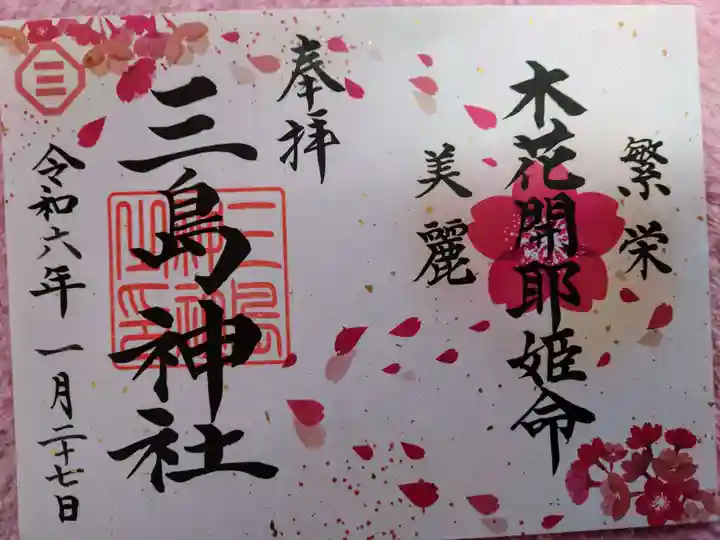 繁栄
木花開耶姫命
美麗
奉拝
三島神社
三島神社之印
令和六年一月二十七日
三